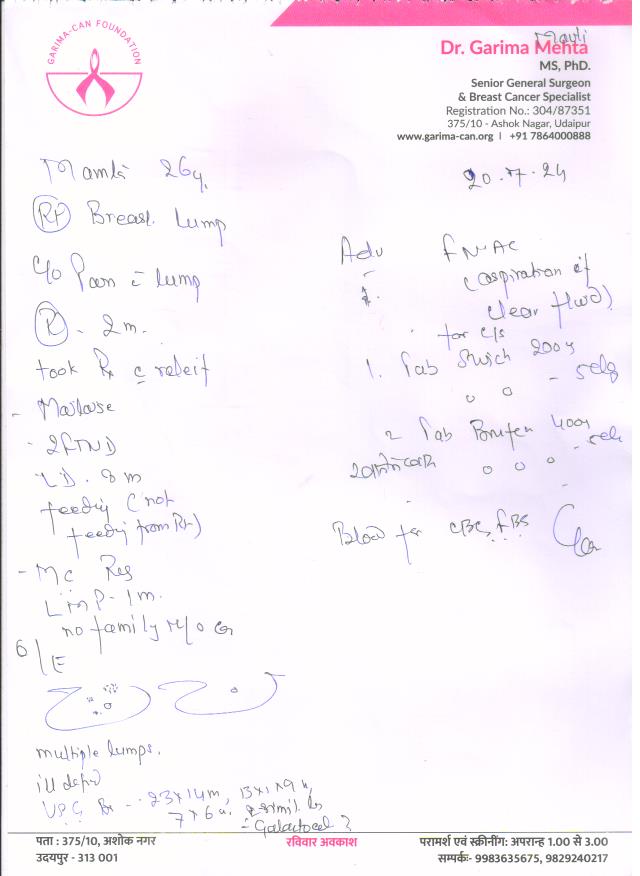 GARIMA-CAN FOUNDATION
Mavli
Dr. Garima Mehta
MS, PhD.
Senior General Surgeon
& Breast Cancer Specialist
Registration No.: 304/87351
375/10 - Ashok Nagar, Udaipur
www.garima-can.org | +91 7864000888
Mamta 26y.
20.7.24
Rt Breast lump
c/o Pain c lump
R - 2m.
took Rx c releif
- Marlause
- 2FTND
LD. 8m
feeding (not
feeding from Rt)
- MC Reg
LMP - 1m.
no family H/o Ca
O/E
multiple lumps.
ill defd
USG Br - 23x14m,
7x6
= Galactocel ?
Adv FNAC
(aspiration of
clear fluid)
for c/s
1. Tab 200
o o - 5 days
2 Tab 400
o o o
Blood for CBC, FBS
पता : 375/10, अशोक नगर
उदयपुर - 313 001
रविवार अवकाश
परामर्श एवं स्क्रीनींग: अपरान्ह 1.00 से 3.00
सम्पर्कः- 9983635675, 9829240217